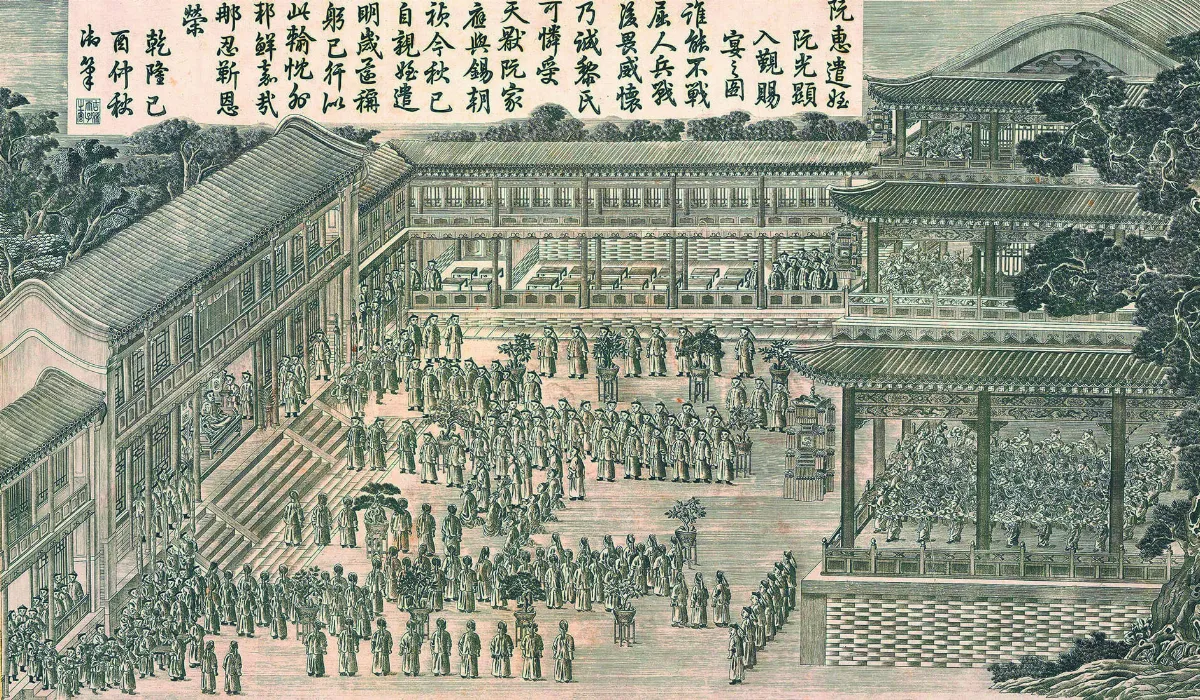 阮惠遣姪
阮光顯
入覲賜
宴之圖
誰能不戰
屈人兵戰
後畏威懷
乃誠黎氏
可憐受
天厭阮家
應與錫朝
禎今秋已
自親姪遣
明歲亟稱
躬己行似
此輸忱外
邦鮮嘉哉
那忍靳恩
榮
乾隆己
酉仲秋
御筆